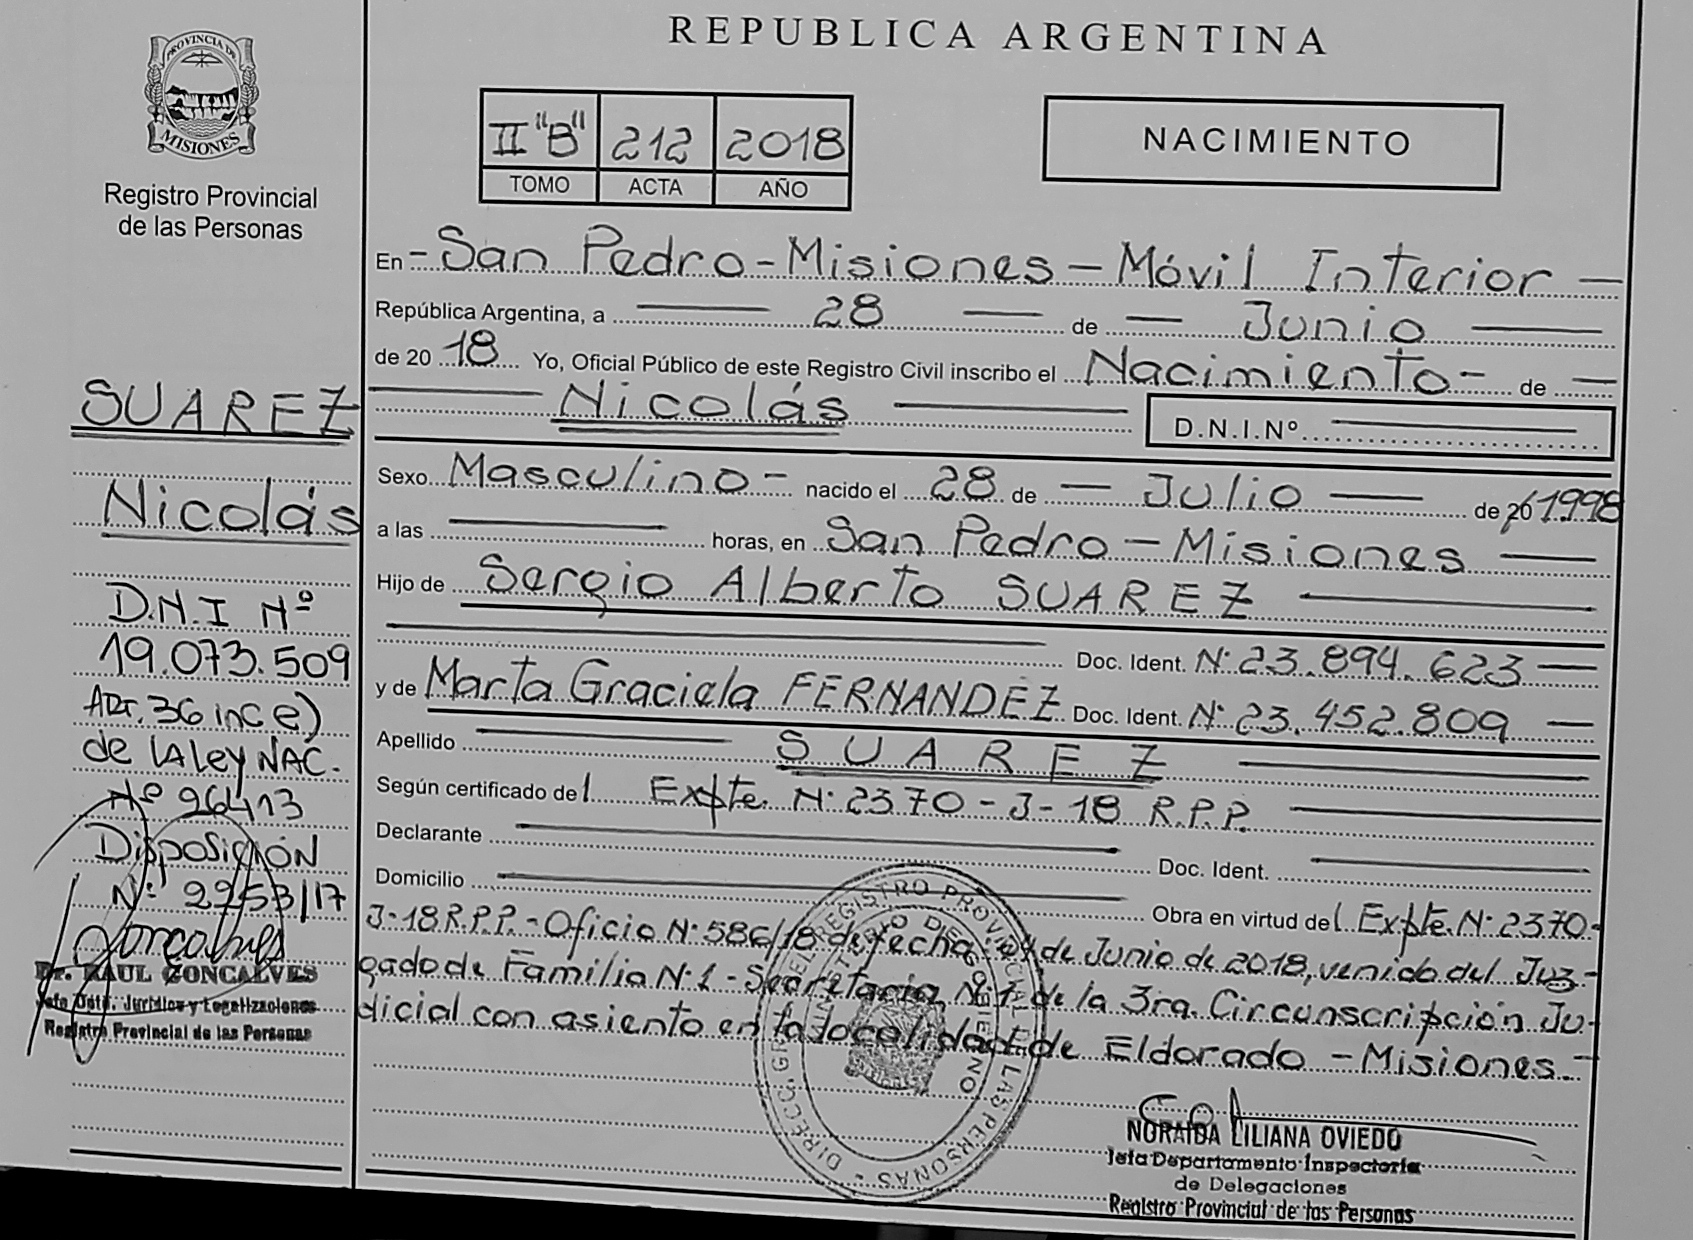 REPUBLICA ARGENTINA
PROVINCIA DE
MISIONES
Registro Provincial
de las Personas
II "B" 212 2018
TOMO ACTA AÑO
NACIMIENTO
En - San Pedro - Misiones - Móvil Interior -
República Argentina, a 28 de Junio
de 20 18 Yo, Oficial Público de este Registro Civil inscribo el Nacimiento - de
Nicolás
D.N.I.Nº
Sexo Masculino - nacido el 28 de Julio de 20 1998
a las horas, en San Pedro - Misiones
Hijo de Sergio Alberto SUAREZ
Doc. Ident. Nº 23.894.623
y de Marta Graciela FERNANDEZ Doc. Ident. Nº 23.452.809
Apellido SUAREZ
Según certificado del Expte. Nº 2370 - J - 18 R.P.P.
Declarante Doc. Ident.
Domicilio
Obra en virtud del Expte. Nº 2370-
J-18 R.P.P. - Oficio Nº 586/18 de fecha de Junio de 2018, venido del Juz-
gado de Familia Nº 1 - Secretaria Nº de la 3ra. Circunscripción Ju-
dicial con asiento en la localidad de Eldorado - Misiones -
SUAREZ
Nicolás
D.N.I Nº
19.073.509
Art. 36 inc e)
de la Ley NAC.
Nº 26413
Disposición
Nº 2253/17
Goncalves
Dr. RAUL GONCALVES
Jefe Dpto. Jurídico y Legalizaciones
Registro Provincial de las Personas
DIRECC. GRAL. DEL REGISTRO PROVINCIAL DE LAS PERSONAS
NORAIDA LILIANA OVIEDO
Jefa Departamento Inspectoria
de Delegaciones
Registro Provincial de las Personas